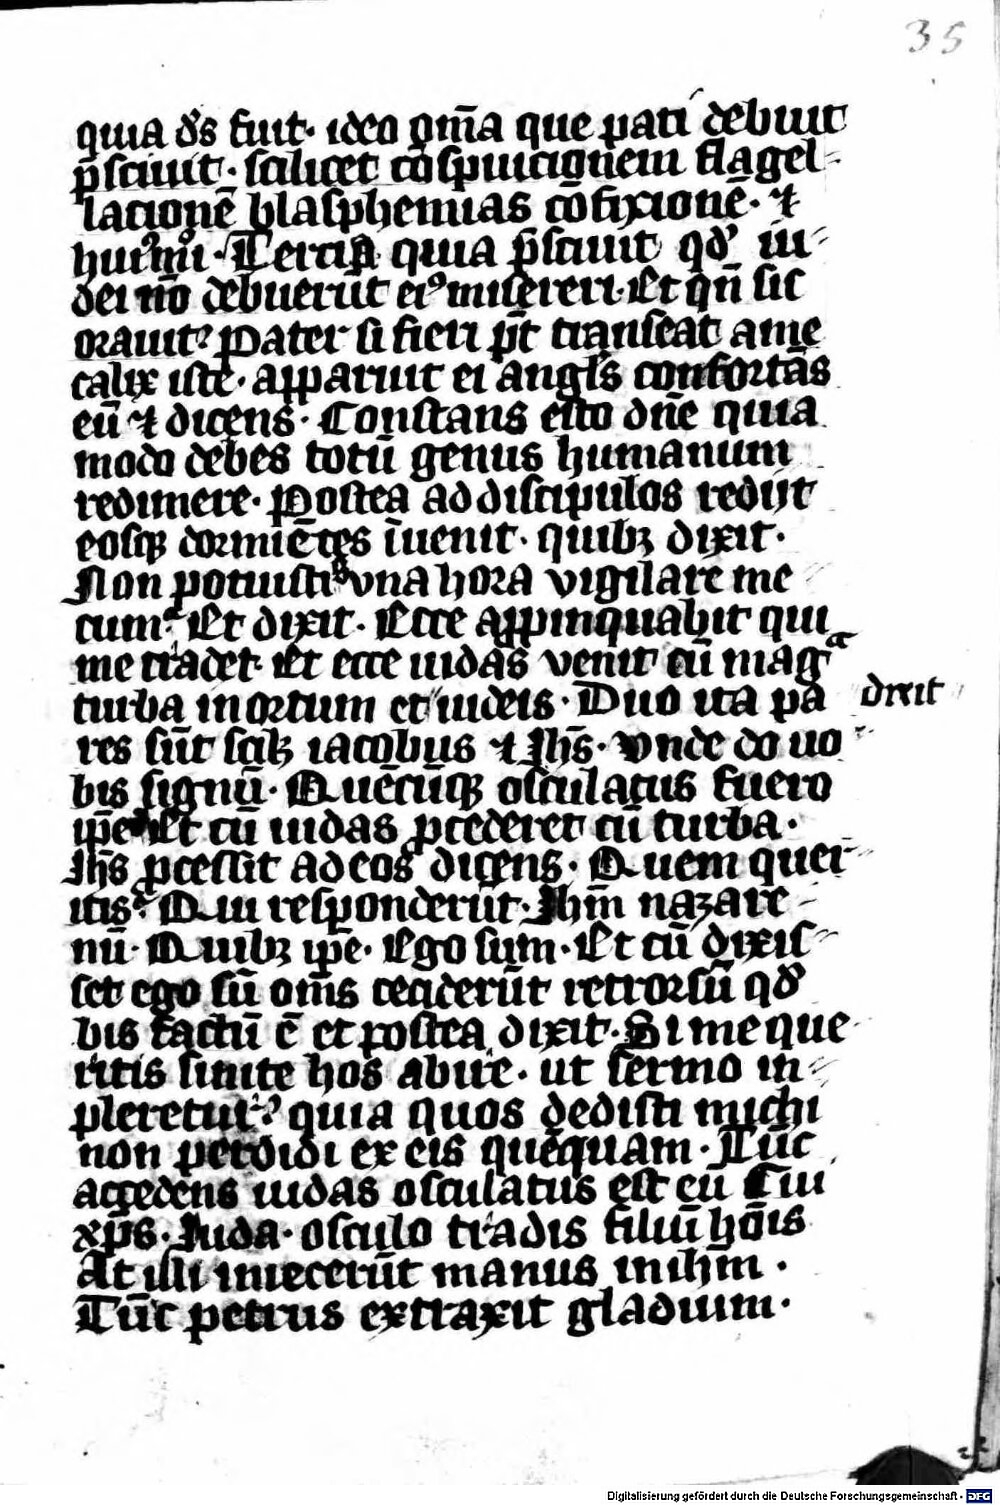 35
quia ds̄ fuit· ideo om̄a que pati debuit
p̄sciuit· scilicet cōspuicionem flagel-
lacionē blasphemias cōfixionē· ⁊
Tercia quia p̄sciuit qd' iu-
dei nō debuerūt ei⁹ misereri· Et qn̄ sic
orauit? Pater si fieri pt̄ transeat a me
calix iste· apparuit ei angl̄s confortās
eū ⁊ dicens· Constans esto dn̄e quia
modo debes totū genus humanum
redimere· Postea ad discipulos redijt
eosqꝫ dormiētes īuenit· quibꝫ dixit·
Non potuistis vna hora vigilare me
cum? Et dixit· Ecce appinquabit qui
me tradet· Et ecce iudas venit cū magᵃ
turba in ortum et iudeis· Duo ita pa
dixit
res sūt scilꝫ iacobus ⁊ Ihs̄· Vnde do uo
bis signū· Quēcūqꝫ osculatus fuero
ip̄e Et cū iudas ꝓcederet cū turba·
Ihs̄ ꝓcessit ad eos dicens· Quem quer-
itis? Qui responderūt· Ihm̄ nazare-
nū· Quibꝫ ip̄e· Ego sum· Et cū dixis-
set ego sū om̄s ceciderūt retrorsū qd'
bis factū ē et postea dixit· Si me que
ritis sinite hos abire· ut sermo in-
pleretur? quia quos dedisti michi
non perdidi ex eis quēquam· Tūc
accedens iudas osculatus est eū Cui
xp̄s· Iuda· osculo tradis filiū hōis
At illi iniecerūt manus in ihm̄·
Tūc petrus extraxit gladium·
Digitalisierung gefördert durch die Deutsche Forschungsgemeinschaft - DFG